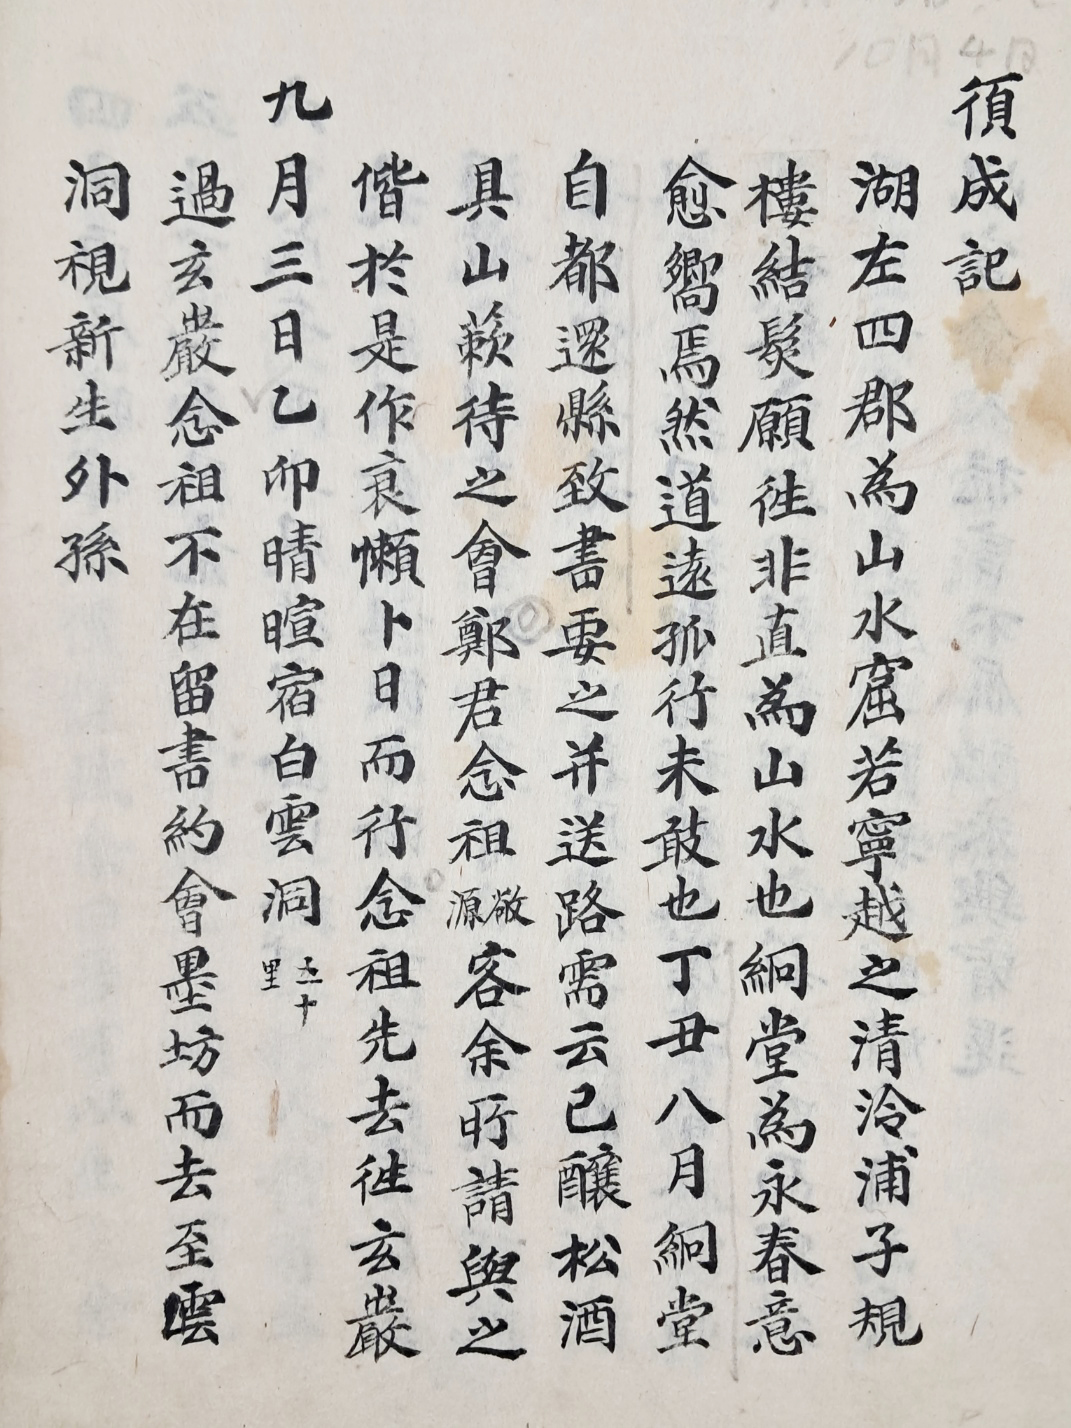 湏成記
湖左四郡為山水窟若寧越之清泠浦子規
樓結髮願徃非直為山水也絅堂為永春意
愈嚮焉然道遠孤行未敢也丁丑八月絅堂
自都還縣致書要之并送路需云已釀松酒
具山蔌待之會鄭君念祖敬源客余所請與之
偕於是作哀懶卜日而行念祖先去徃玄巖
九月三日乙卯晴暄宿白雲洞五十里
過玄巖念祖不在留書約會墨坊而去至雲
洞視新生外孫